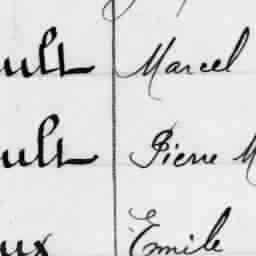 ult Marcel
ult Pierre M
ux Emile